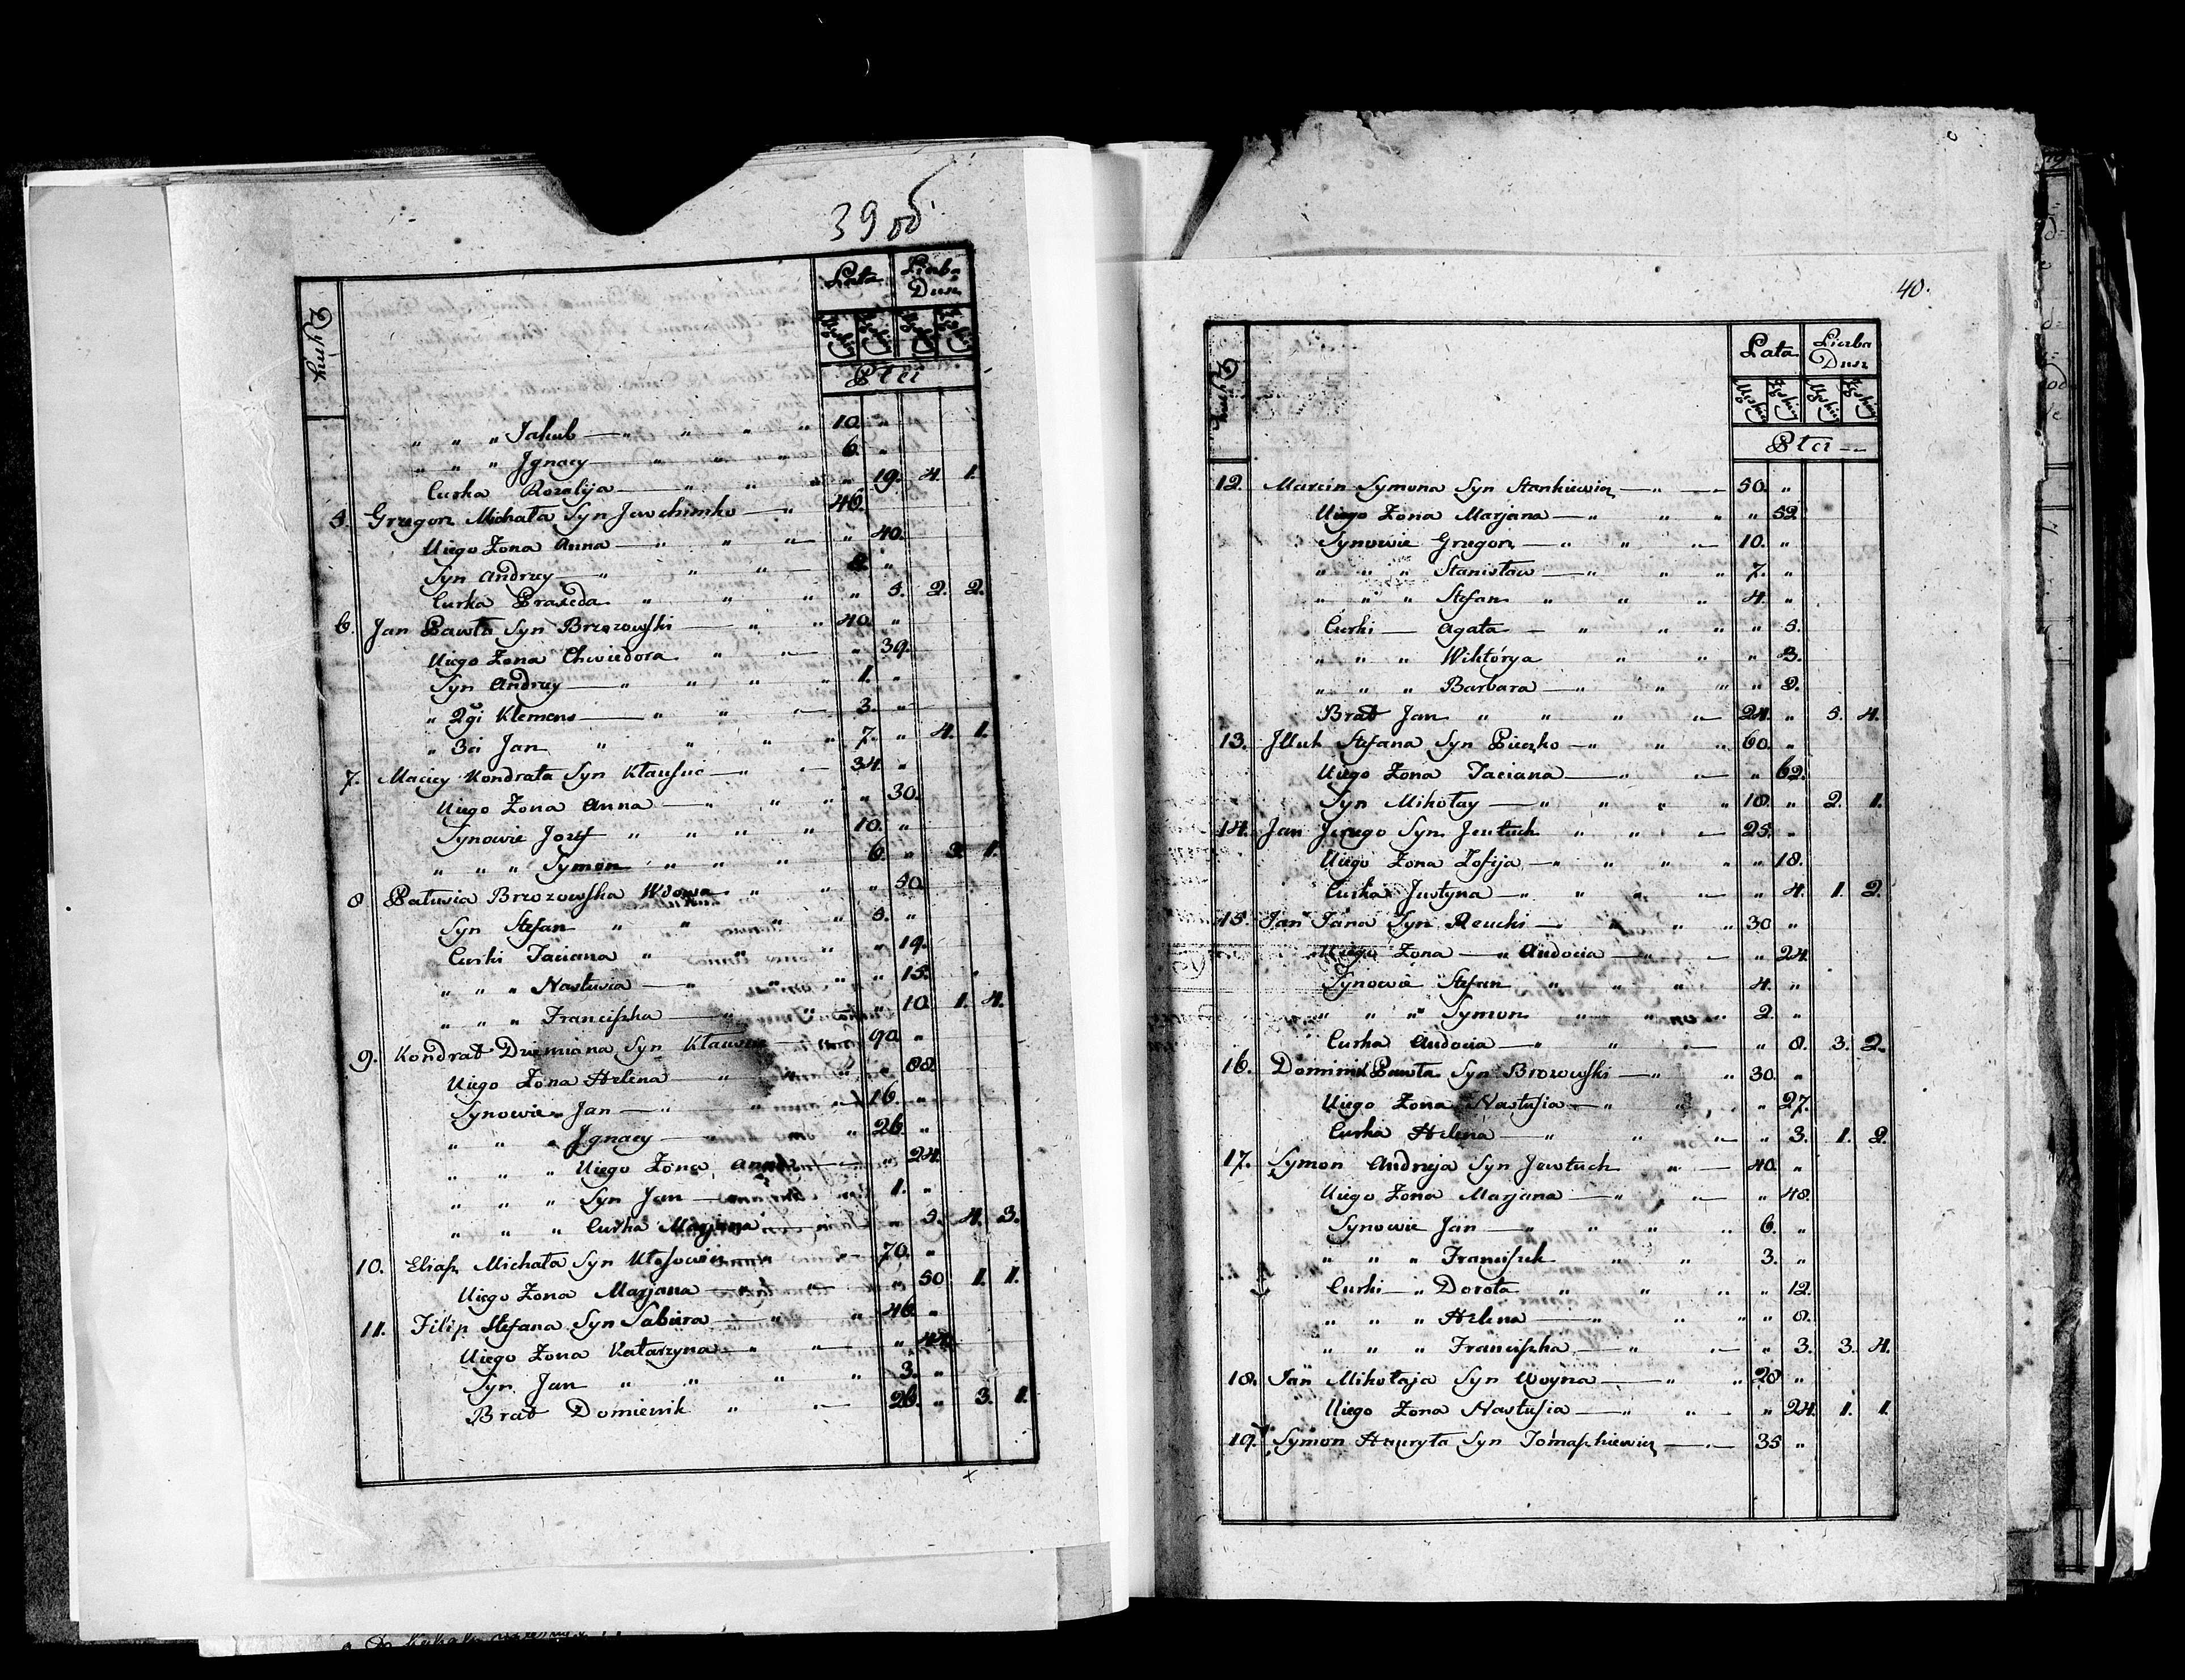 39 об
Dymy
Lata
Liczba Dusz
Płci
" " " Jakub — " " " " 10.
" " " Jgnacy — " " " 6. "
Curka Rozalija — " " " " 19. 4. 1.
5. Grzegorz Michała Syn Jewchimko — " 46.
Uiego Zona Anna — " " " " 40.
Syn Andrzey — " " " "
Curka Praxeda " " " " 5. 2. 2.
6. Jan Pawła Syn Brzozowski — " " 40. "
Uiego Zona Chwiedora " " " 39.
Syn Andrzey — " " " " 1. "
" 2gi Klemens — " " " 3. "
" 3ci Jan " " " " 7. " 4. 1.
7. Maciey Kondrata Syn Kłausuć — " " 34. "
Uiego Zona Anna — " " " " 30.
Synowie Jozef " " " " 10. "
" " " Symon " " " 6. " 3. 1.
8 Patusia Brzozowska Wdowa " " " 50
Syn Stefan " " " " 5. "
Curki Taciana " " " " 19.
" " " Nastusia — " " " " 15.
" " " Franciszka — " " " 10. 1. 4.
9. Kondrat Dziemiana Syn — 90. "
Uiego Zona Helena — " " " 88.
Synowie Jan — " " " 16. "
" " " Jgnacy — " " 26. "
" " " Uiego Zona — " 24.
" " " Syn Jan — 1. "
" " " Curka Marjana — " 5. 4. 3.
10. Eliasz Michała Syn — " 70. "
Uiego Zona Marjana — " " " 50. 1. 1.
11. Filip Stefana Syn Sabura — " " 46. "
Uiego Zona Katarzyna — " " "
Syn Jan " " " " 3. "
Brat Domienik " " 26. " 3. 1.
40.
Dymy
Lata
Liczba Dusz
Męskiey Żeńskiey Męskiey Żeńskiey
Płci —
12. Marcin Symona Syn Stankiewicz — " — 50. "
Uiego Zona Marjana — " " " " 52
Synowie Grzegorz — " " " 10. "
" " " Stanisław — " " " 7. "
" " " Stefan " " " 4. "
Curki — Agata — " " " " 5.
" " " Wiktórya " " " 3.
" " " Barbara — " " " " 2.
Brat Jan " " " " 24. " 5. 4.
13. Jlluk Stefana Syn Pieczko — " " " 60. "
Uiego Zona Taciana — " " " 62.
Syn Mikołay — " " " " 18. " 2. 1.
14. Jan Jerzego Syn Jewłuch " " " 25. "
Uiego Zona Zofija — " " " " " 18.
Curka Justyna — " " " " " 4. 1. 2.
15. Jan Jana Syn Reucki — " " " 30 "
Uiego Zona — " Audocia — " " " 24
Synowie Stefan " " " 4. "
" " " Symon " " " 2. "
Curka Audocia — " " " " 8. 3. 2.
16. Dominik Pawła Syn Brozowski — " " 30. "
Uiego Zona Nastusia — " " " 27.
Curka Helena — " " " " 3. 1. 2.
17. Symon Andrzeja Syn Jewłuch " — 40. "
Uiego Zona Marjana — " " " 48.
Synowie Jan — " " " " 6. "
" " " Franciszek " " 3. "
Curki — " Dorota " " " " 12.
" " " Helena — " " " " 8.
" " " Franciszka — " " " 3. 3. 4.
18. Jan Mikołaja Syn Woyna — " " 28 "
Uiego Zona Nastusia — " " " 24. 1. 1.
19. Symon Hauryła Syn Tomaszkiewicz — " 35 "